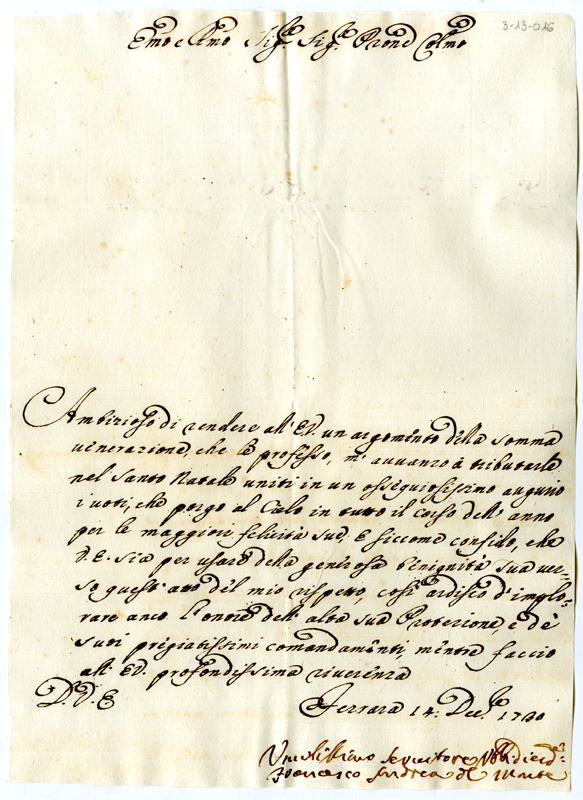 3-13-016
Emo e Rmo Sig.r Sig.r Prone Colmo
Ambizioso di rendere all' E.V. un argomento della somma
venerazione, che le professo, m' avvanzo à tributarle
nel Santo Natale uniti in un ossequiosissimo augurio
i voti, che porgo al Cielo in tutto il corso dell' anno
per le maggiori felicità sue. E siccome confido, che
V.E. sia per usare della generosa benignità sua ver-
so quest' atto del mio rispetto, così ardisco d' implo-
rare anco l' onore dell' alta sua Protezione, e de
suoi pregiatissimi comandamenti, mentre faccio
all' E.V. profondissima riverenza
D. V. E
Ferrara 14. Dec.e 1720
Umilissimo Servitore
Francesco Andrea del Monte